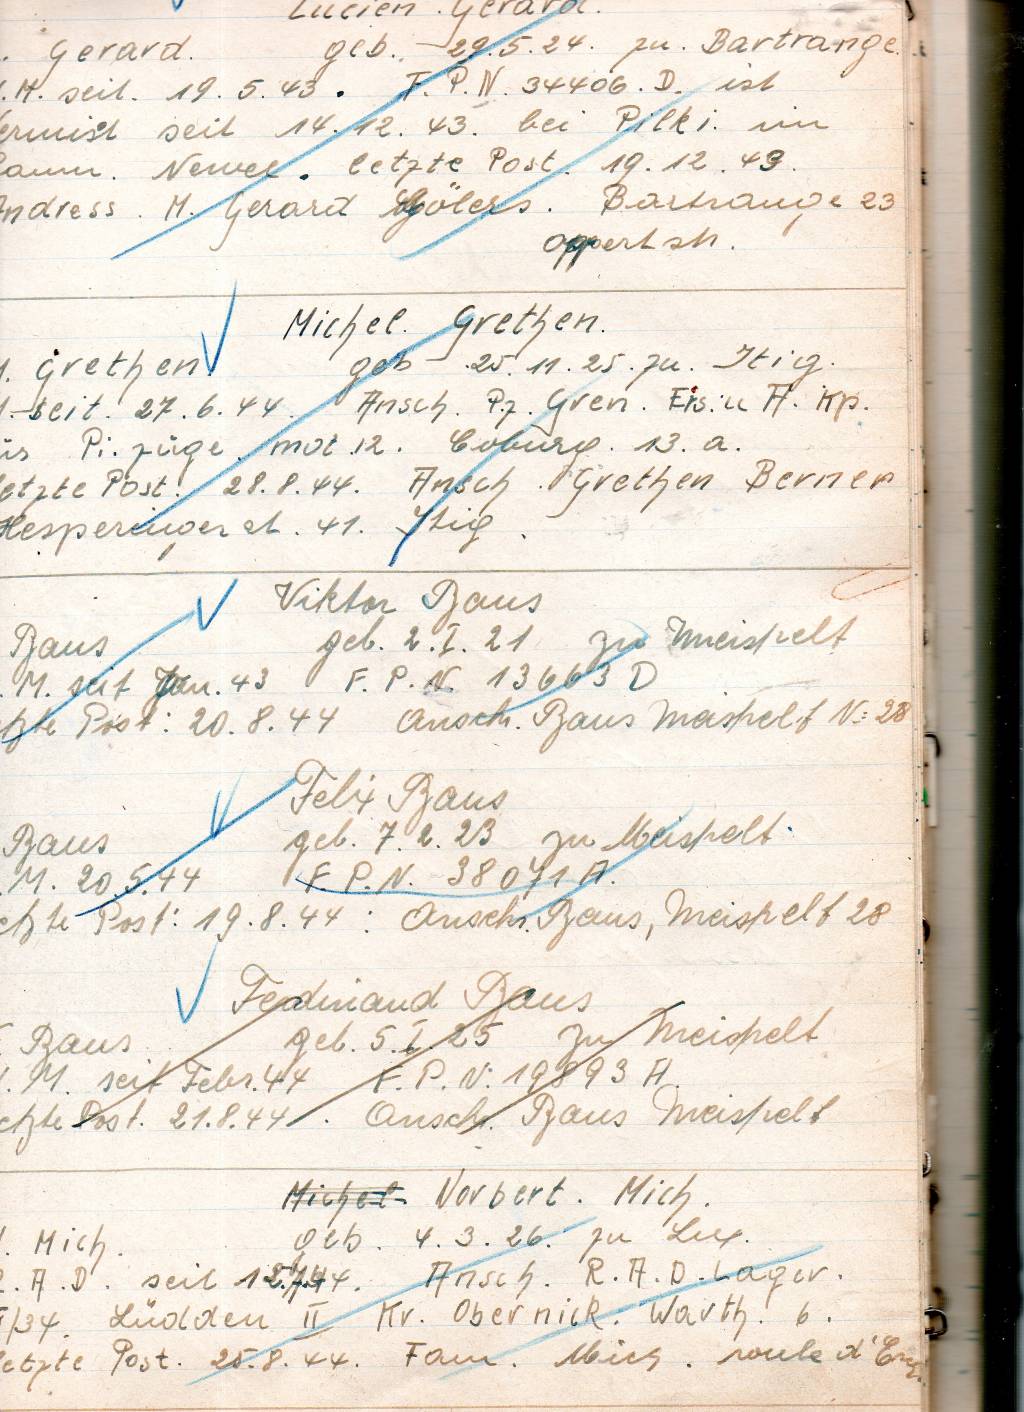 Lucien Gerard.
. Gerard. geb. 29.5.24. zu. Bartrange.
.M. seit. 19.5.43. F.P.N. 34406.D. ist
ermist seit 14.12.43. bei Pilki. im
letzte Post. 19.12.43.
Andress. M. Gerard Bartrange 23
Michel. Grethen.
. Grethen. geb 25.11.25. zu. Itig.
seit. 27.6.44. Ansch. Pz. Gren. Ers. u A. Kp.
Pi. züge. mot. 12. Coburg. 13. a.
etzte Post. 28.8.44. Ansch. Grethen Berner
Hesperinger st. 41. Itig.
Viktor Baus
Baus geb. 2.I.21 zu Meispelt
.M. seit Jan. 43 F.P.N. 13663 D
etzte Post: 20.8.44 Ansch. Baus Meispelt No 28
Felix Baus
Baus geb. 7.2.23 zu Meispelt.
.M. 20.5.44 F.P.N. 38071 A.
etzte Post: 19.8.44: Ansch. Baus, Meispelt 28
Ferdinand Baus
Baus geb. 5.I.25 zu Meispelt
.M. seit Febr. 44 F.P.N. 19893 A.
etzte Post. 21.8.44. Ansch. Baus Meispelt
Michel Norbert. Mich.
. Mich. geb. 4.3.26. zu Lux.
.A.D. seit Ansch. R.A.D. Lager.
/34. Lüdden II Kr. Obernick. Warth. 6.
letzte Post. 25.8.44. Fam. Mich. route d'